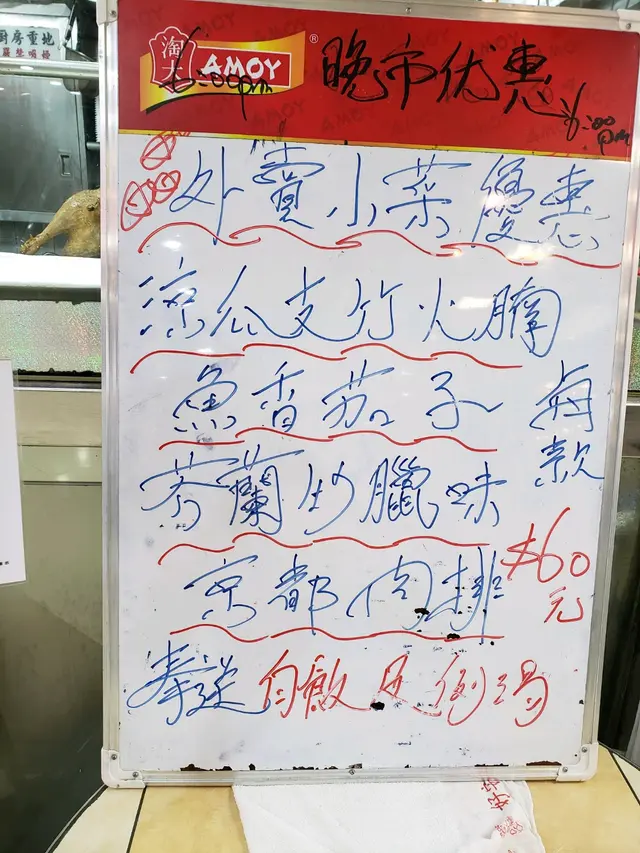 廚房重地
淘大
AMOY®
晚市优惠
6:00pm
6:00pm
外賣小菜優惠
凉瓜支竹火腩
魚香茄子
每款
芥蘭炒臘味
$60元
京都肉排
奉送白飯及例湯